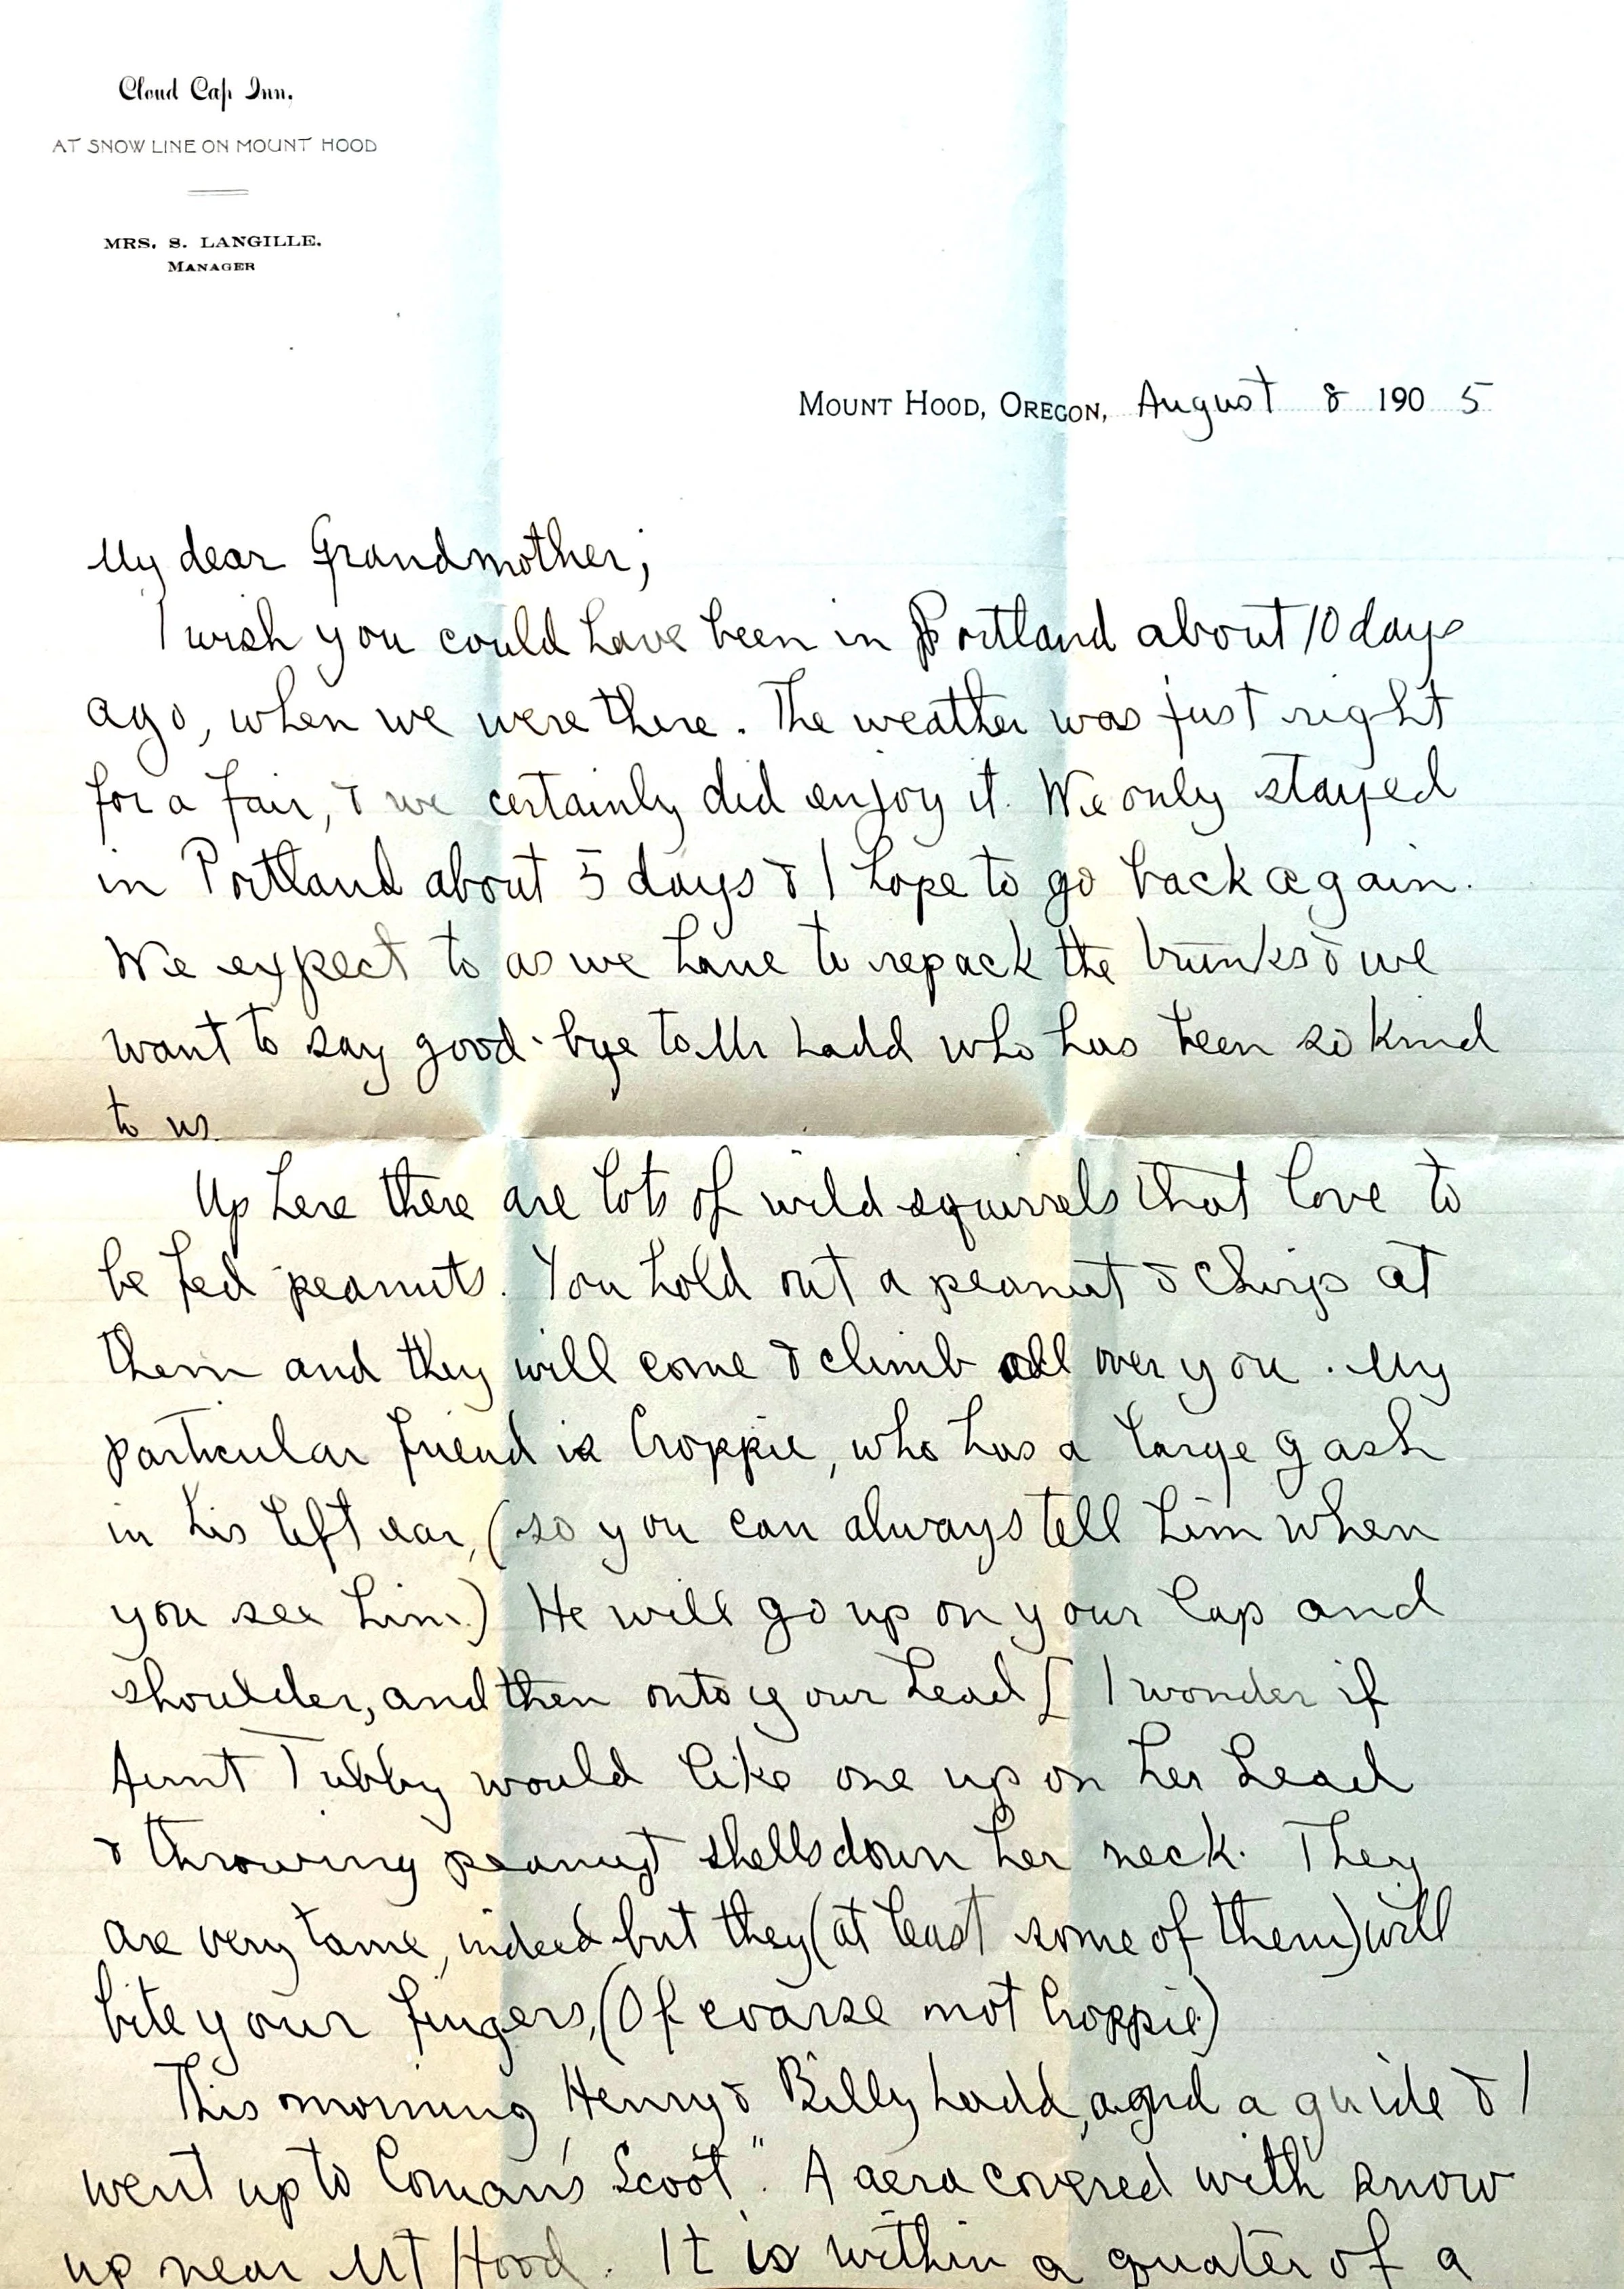 Cloud Cap Inn.
AT SNOW LINE ON MOUNT HOOD
MRS. S. LANGILLE.
MANAGER
MOUNT HOOD, OREGON, August 8 1905
My dear Grandmother;
I wish you could have been in Portland about 10 days
ago, when we were there. The weather was just right
for a fair, & we certainly did enjoy it. We only stayed
in Portland about 5 days & I hope to go back again.
We expect to as we have to repack the trunks & we
want to say good-bye to Mr Ladd who has been so kind
to us.
Up here there are lots of wild squirrels that love to
be fed peanuts. You hold out a peanut & chirp at
them and they will come & climb all over you. My
particular friend is Croppie, who has a large gash
in his left ear, (so you can always tell him when
you see him.) He will go up on your lap and
shoulder, and then onto your head [ I wonder if
Aunt Tubby would like one up on her head
& throwing peanut shells down her neck. They
are very tame, indeed but they (at least some of them) will
bite your fingers, (Of coarse not Croppie)
This morning Henry & Billy Ladd, and a guide & I
went up to Coman's Scoot". A aera covered with snow
up near Mt Hood. It is within a quater of a